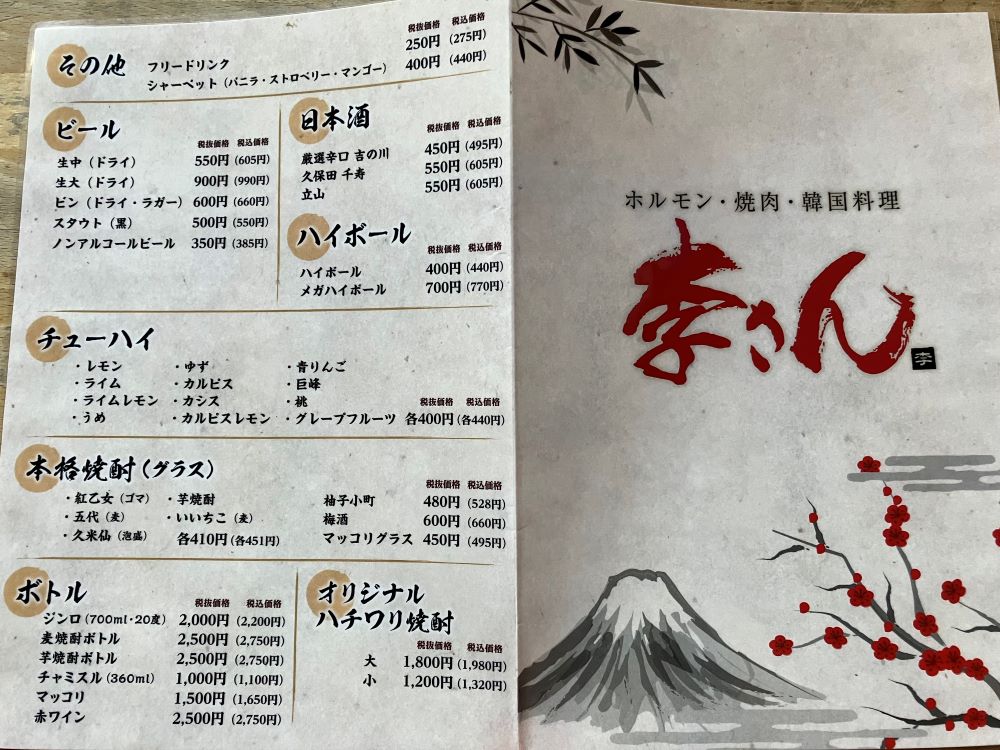 その他
税抜価格 税込価格
フリードリンク 250円 (275円)
シャーベット (バニラ・ストロベリー・マンゴー) 400円 (440円)
ビール
税抜価格 税込価格
生中 (ドライ) 550円 (605円)
生大 (ドライ) 900円 (990円)
ビン (ドライ・ラガー) 600円 (660円)
スタウト (黒) 500円 (550円)
ノンアルコールビール 350円 (385円)
日本酒
税抜価格 税込価格
厳選辛口 吉の川 450円 (495円)
久保田 千寿 550円 (605円)
立山 550円 (605円)
ハイボール
税抜価格 税込価格
ハイボール 400円 (440円)
メガハイボール 700円 (770円)
チューハイ
・レモン ・ゆず ・青りんご
・ライム ・カルピス ・巨峰
・ライムレモン ・カシス ・桃 税抜価格 税込価格
・うめ ・カルピスレモン ・グレープフルーツ 各400円 (各440円)
本格焼酎 (グラス)
・紅乙女 (ゴマ) ・芋焼酎
・五代 (麦) ・いいちこ (麦)
・久米仙 (泡盛) 各410円 (各451円)
税抜価格 税込価格
柚子小町 480円 (528円)
梅酒 600円 (660円)
マッコリグラス 450円 (495円)
ボトル
税抜価格 税込価格
ジンロ (700ml・20度) 2,000円 (2,200円)
麦焼酎ボトル 2,500円 (2,750円)
芋焼酎ボトル 2,500円 (2,750円)
チャミスル (360ml) 1,000円 (1,100円)
マッコリ 1,500円 (1,650円)
赤ワイン 2,500円 (2,750円)
オリジナル
ハチワリ焼酎
税抜価格 税込価格
大 1,800円 (1,980円)
小 1,200円 (1,320円)
ホルモン・焼肉・韓国料理
李さん
李